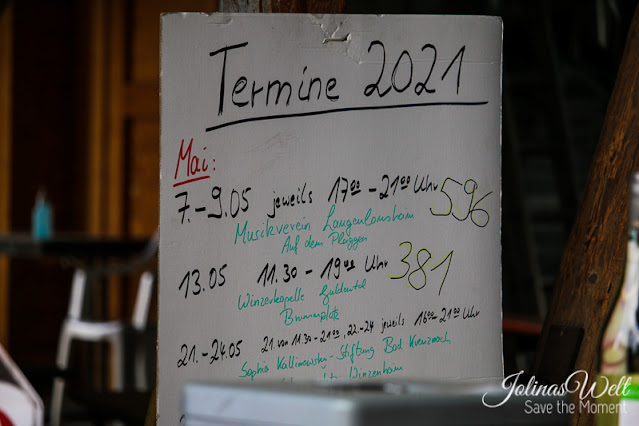 Termine 2021
Mai:
7.-9.05 jeweils 17⁰⁰-21⁰⁰ Uhr 596
Musikverein Langenlonsheim
Auf dem Plaggen
13.05 11.30-19⁰⁰ Uhr 381
Winzerkapelle Guldental
Brunnenplatz
21.-24.05 21. von 11.30-21⁰⁰, 22.-24 jeweils 16⁰⁰-21⁰⁰ Uhr
Sophia Kallinowsky-Stiftung Bad Kreuznach
Winzenheim
JolinasWelt
Save the Moment